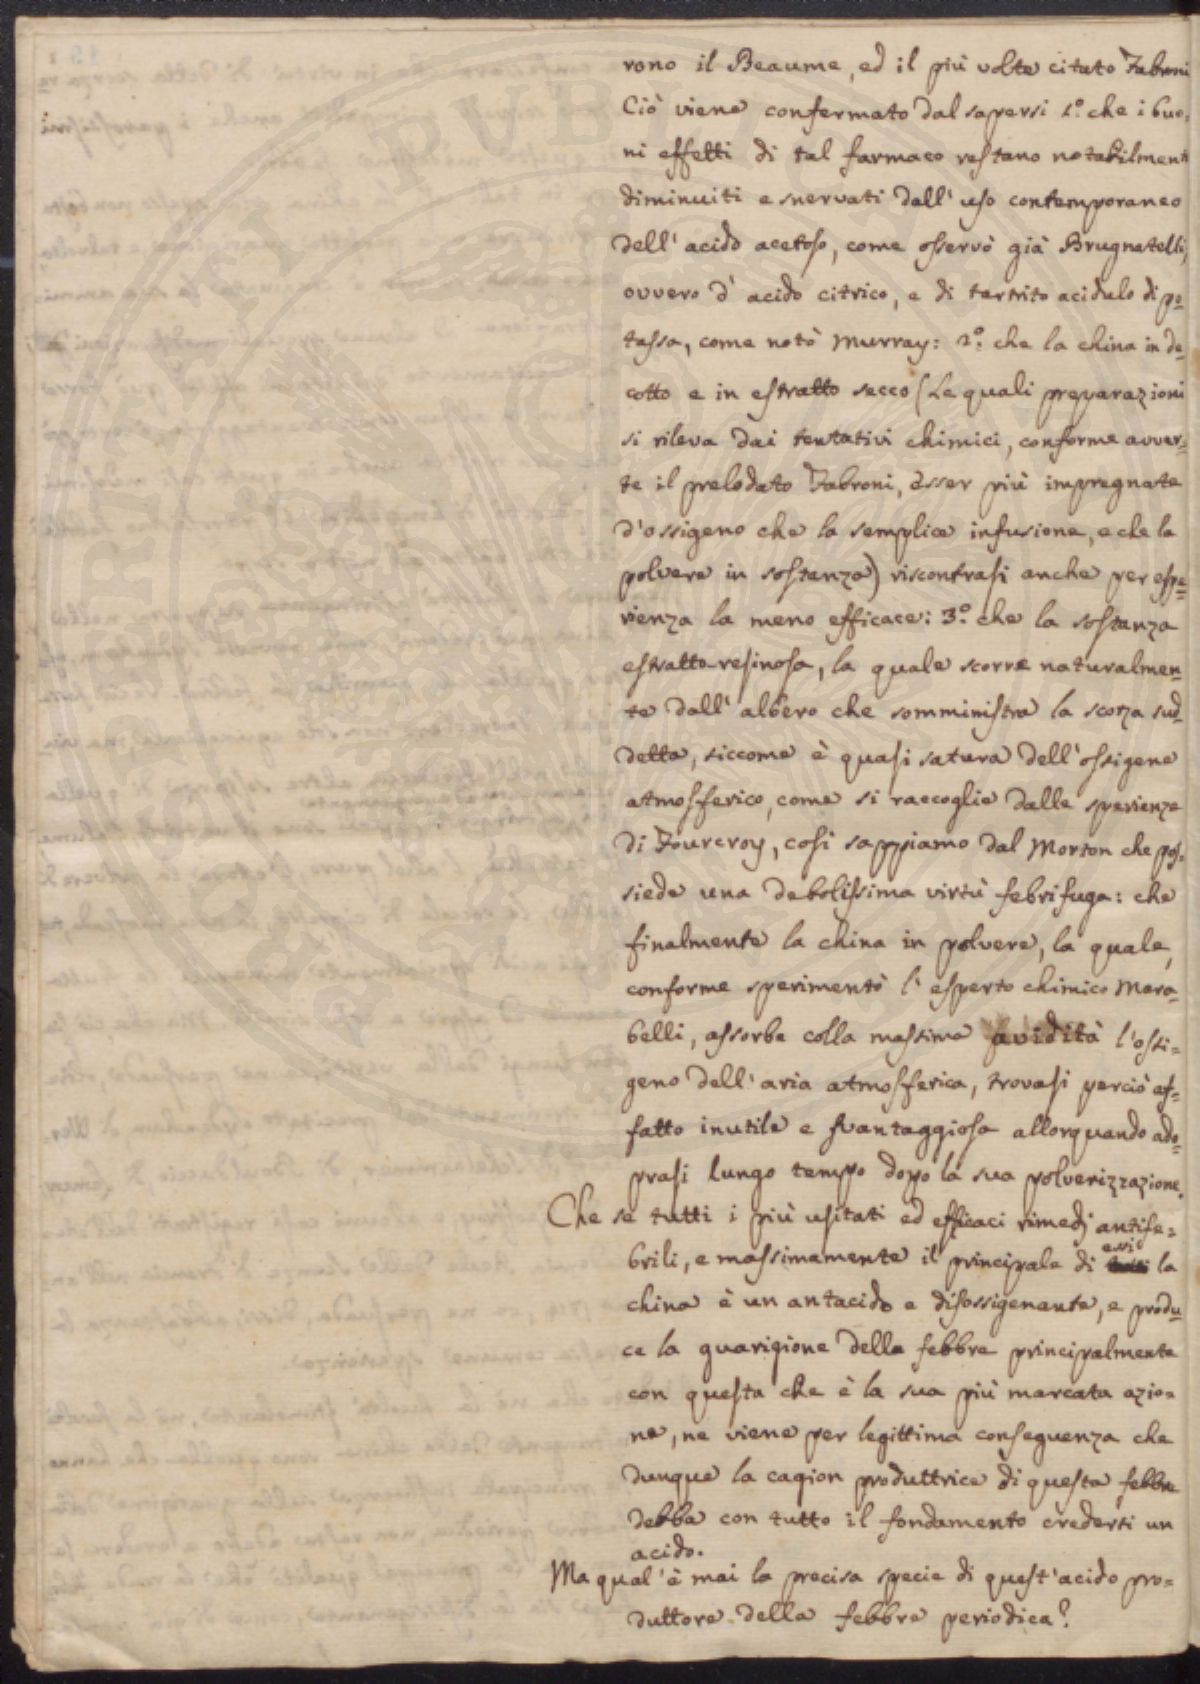 rono il Beaume, ed il più volte citato Fabroni
Ciò viene confermato dal sapersi 1.º che i buo-
ni effetti di tal farmaco restano notabilmente
diminuiti e snervati dall' uso contemporaneo
dell' acido acetoso, come osservò già Brugnatelli,
ovvero d' acido citrico, e di tartrito acidulo di po=
tassa, come notò Murray: 2.º che la china in de=
cotto e in estratto secco (le quali preparazioni
si rileva dai tentativi chimici, conforme avver=
te il prelodato Fabroni, esser più impregnate
d'ossigeno che la semplice infusione, e che la
polvere in sostanza) riscontrasi anche per espe=
rienza la meno efficace: 3.º che la sostanza
estratto-resinosa, la quale scorre naturalmen=
te dall' albero che somministra la scorza sud=
detta, siccome è quasi satura dell' ossigene
atmosferico, come si raccoglie dalle sperienze
di Fourcroy, così sappiamo dal Morton che pos=
siede una debolissima virtù febrifuga: che
finalmente la china in polvere, la quale,
conforme sperimentò l' esperto chimico Mara=
belli, assorbe colla massima avidità l'ossi=
geno dell' aria atmosferica, trovasi perciò af=
fatto inutile e svantaggiosa allorquando ado=
prasi lungo tempo dopo la sua polverizzazione.
Che se tutti i più usitati ed efficaci rimedj antife=
brili, e massimamente il principale di essi la
china è un antacido e disossigenante, e produ=
ce la guarigione della febbre principalmente
con questa che è la sua più marcata azio=
ne, ne viene per legittima conseguenza che
dunque la cagion produttrice di questa febbre
debba con tutto il fondamento credersi un
acido.
Ma qual' è mai la precisa specie di quest' acido pro=
duttore della febbre periodica?